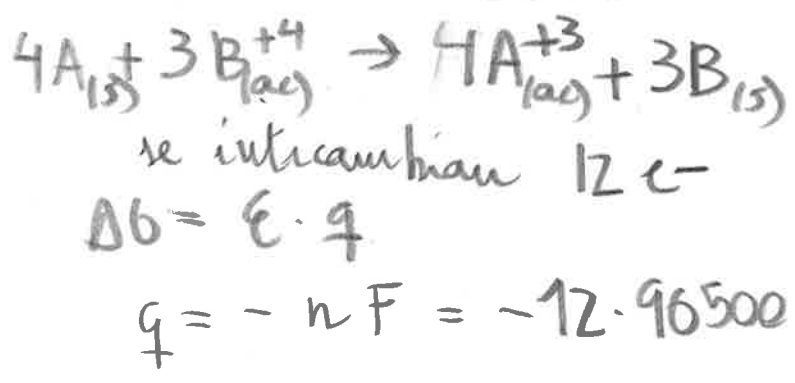 4A(s) + 3B+4(ac) → 4A+3(ac) + 3B(s)
se intercambian 12 e-
ΔG = ε · q
q = - n F = -12·96500